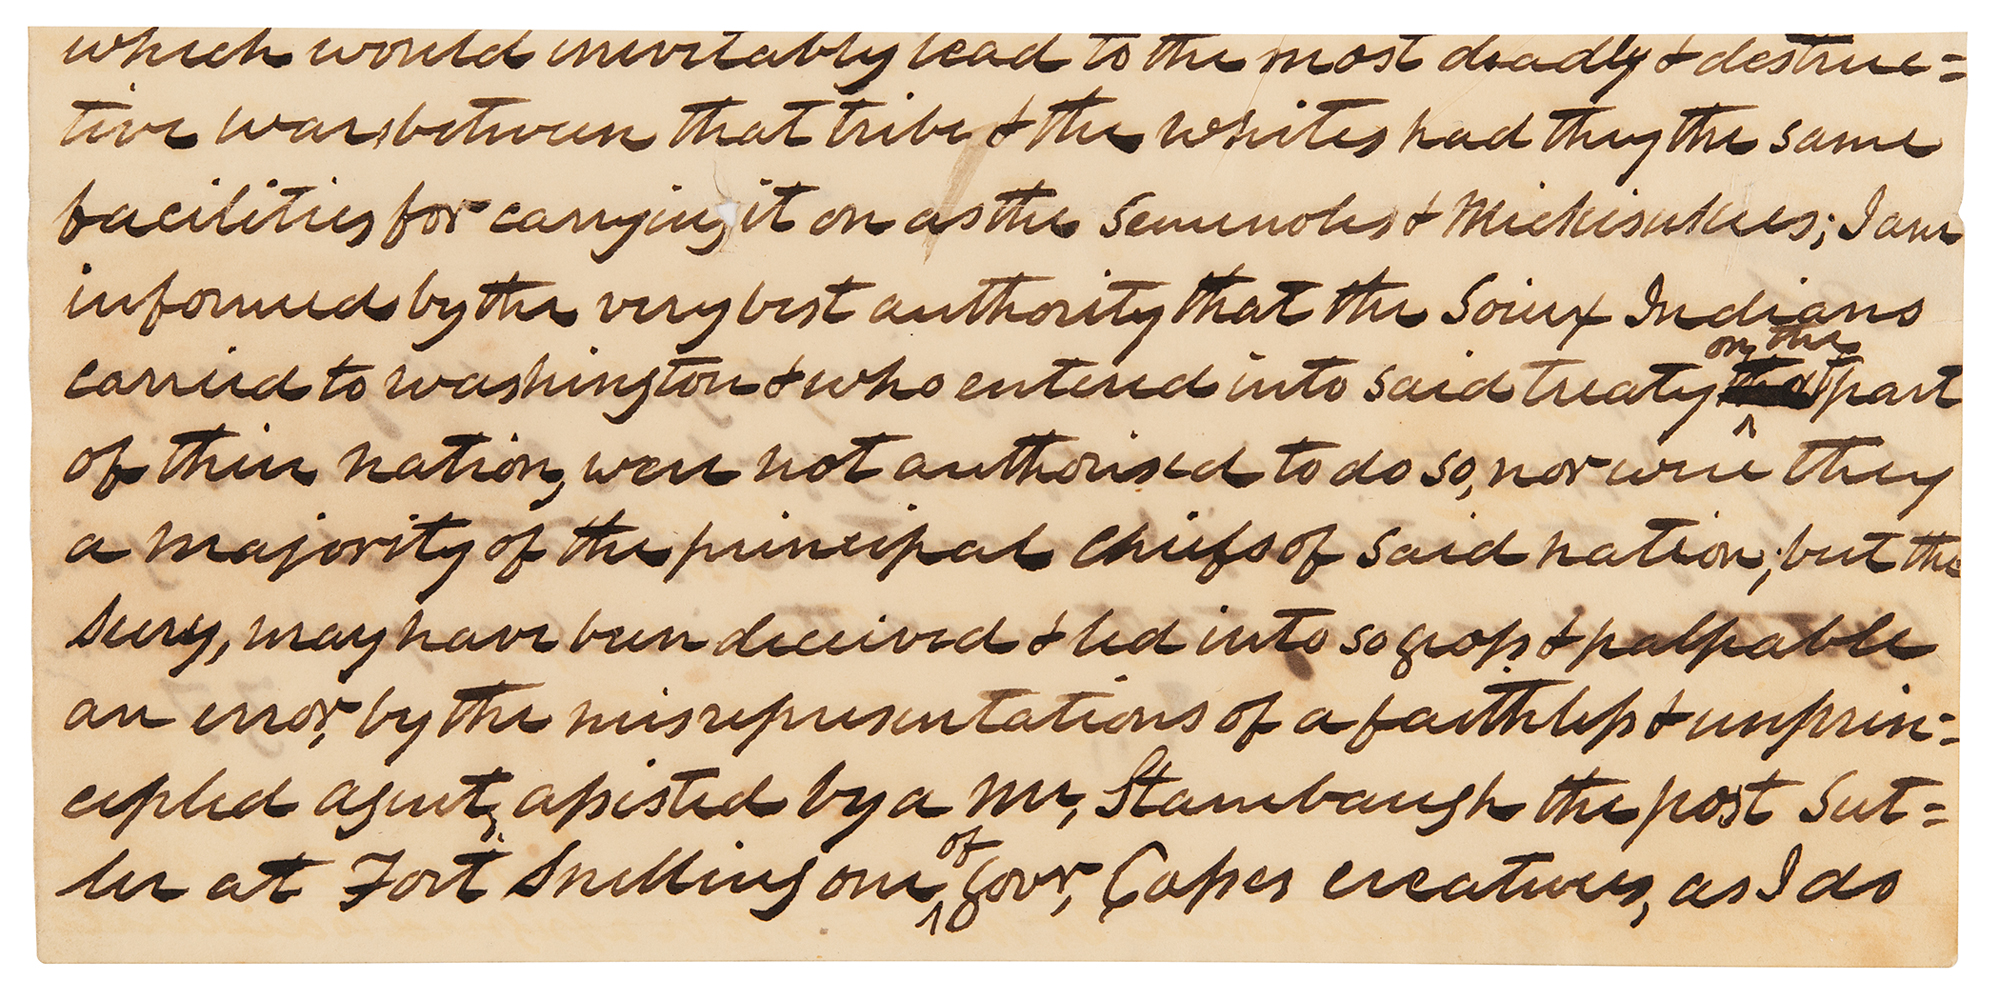 which would inevitably lead to the most deadly & destruc=
tive war, between that tribe & the whites had they the same
facilities for carrying it on as the Seminoles & Mickisukees; I am
informed by the very best authority that the Soiux Indians
carried to Washington & who entered into said treaty on the part
of their nation, were not authorised to do so, nor were they
a majority of the principal Chiefs of said nation; but the
Secry, may have been deceived & led into so gross & palpable
an error, by the misrepresentations of a faithless & unprin=
cipled agent, assisted by a Mr, Stambaugh the post Sut=
ler at Fort Snelling one of Govr, Casses creatures, as I do